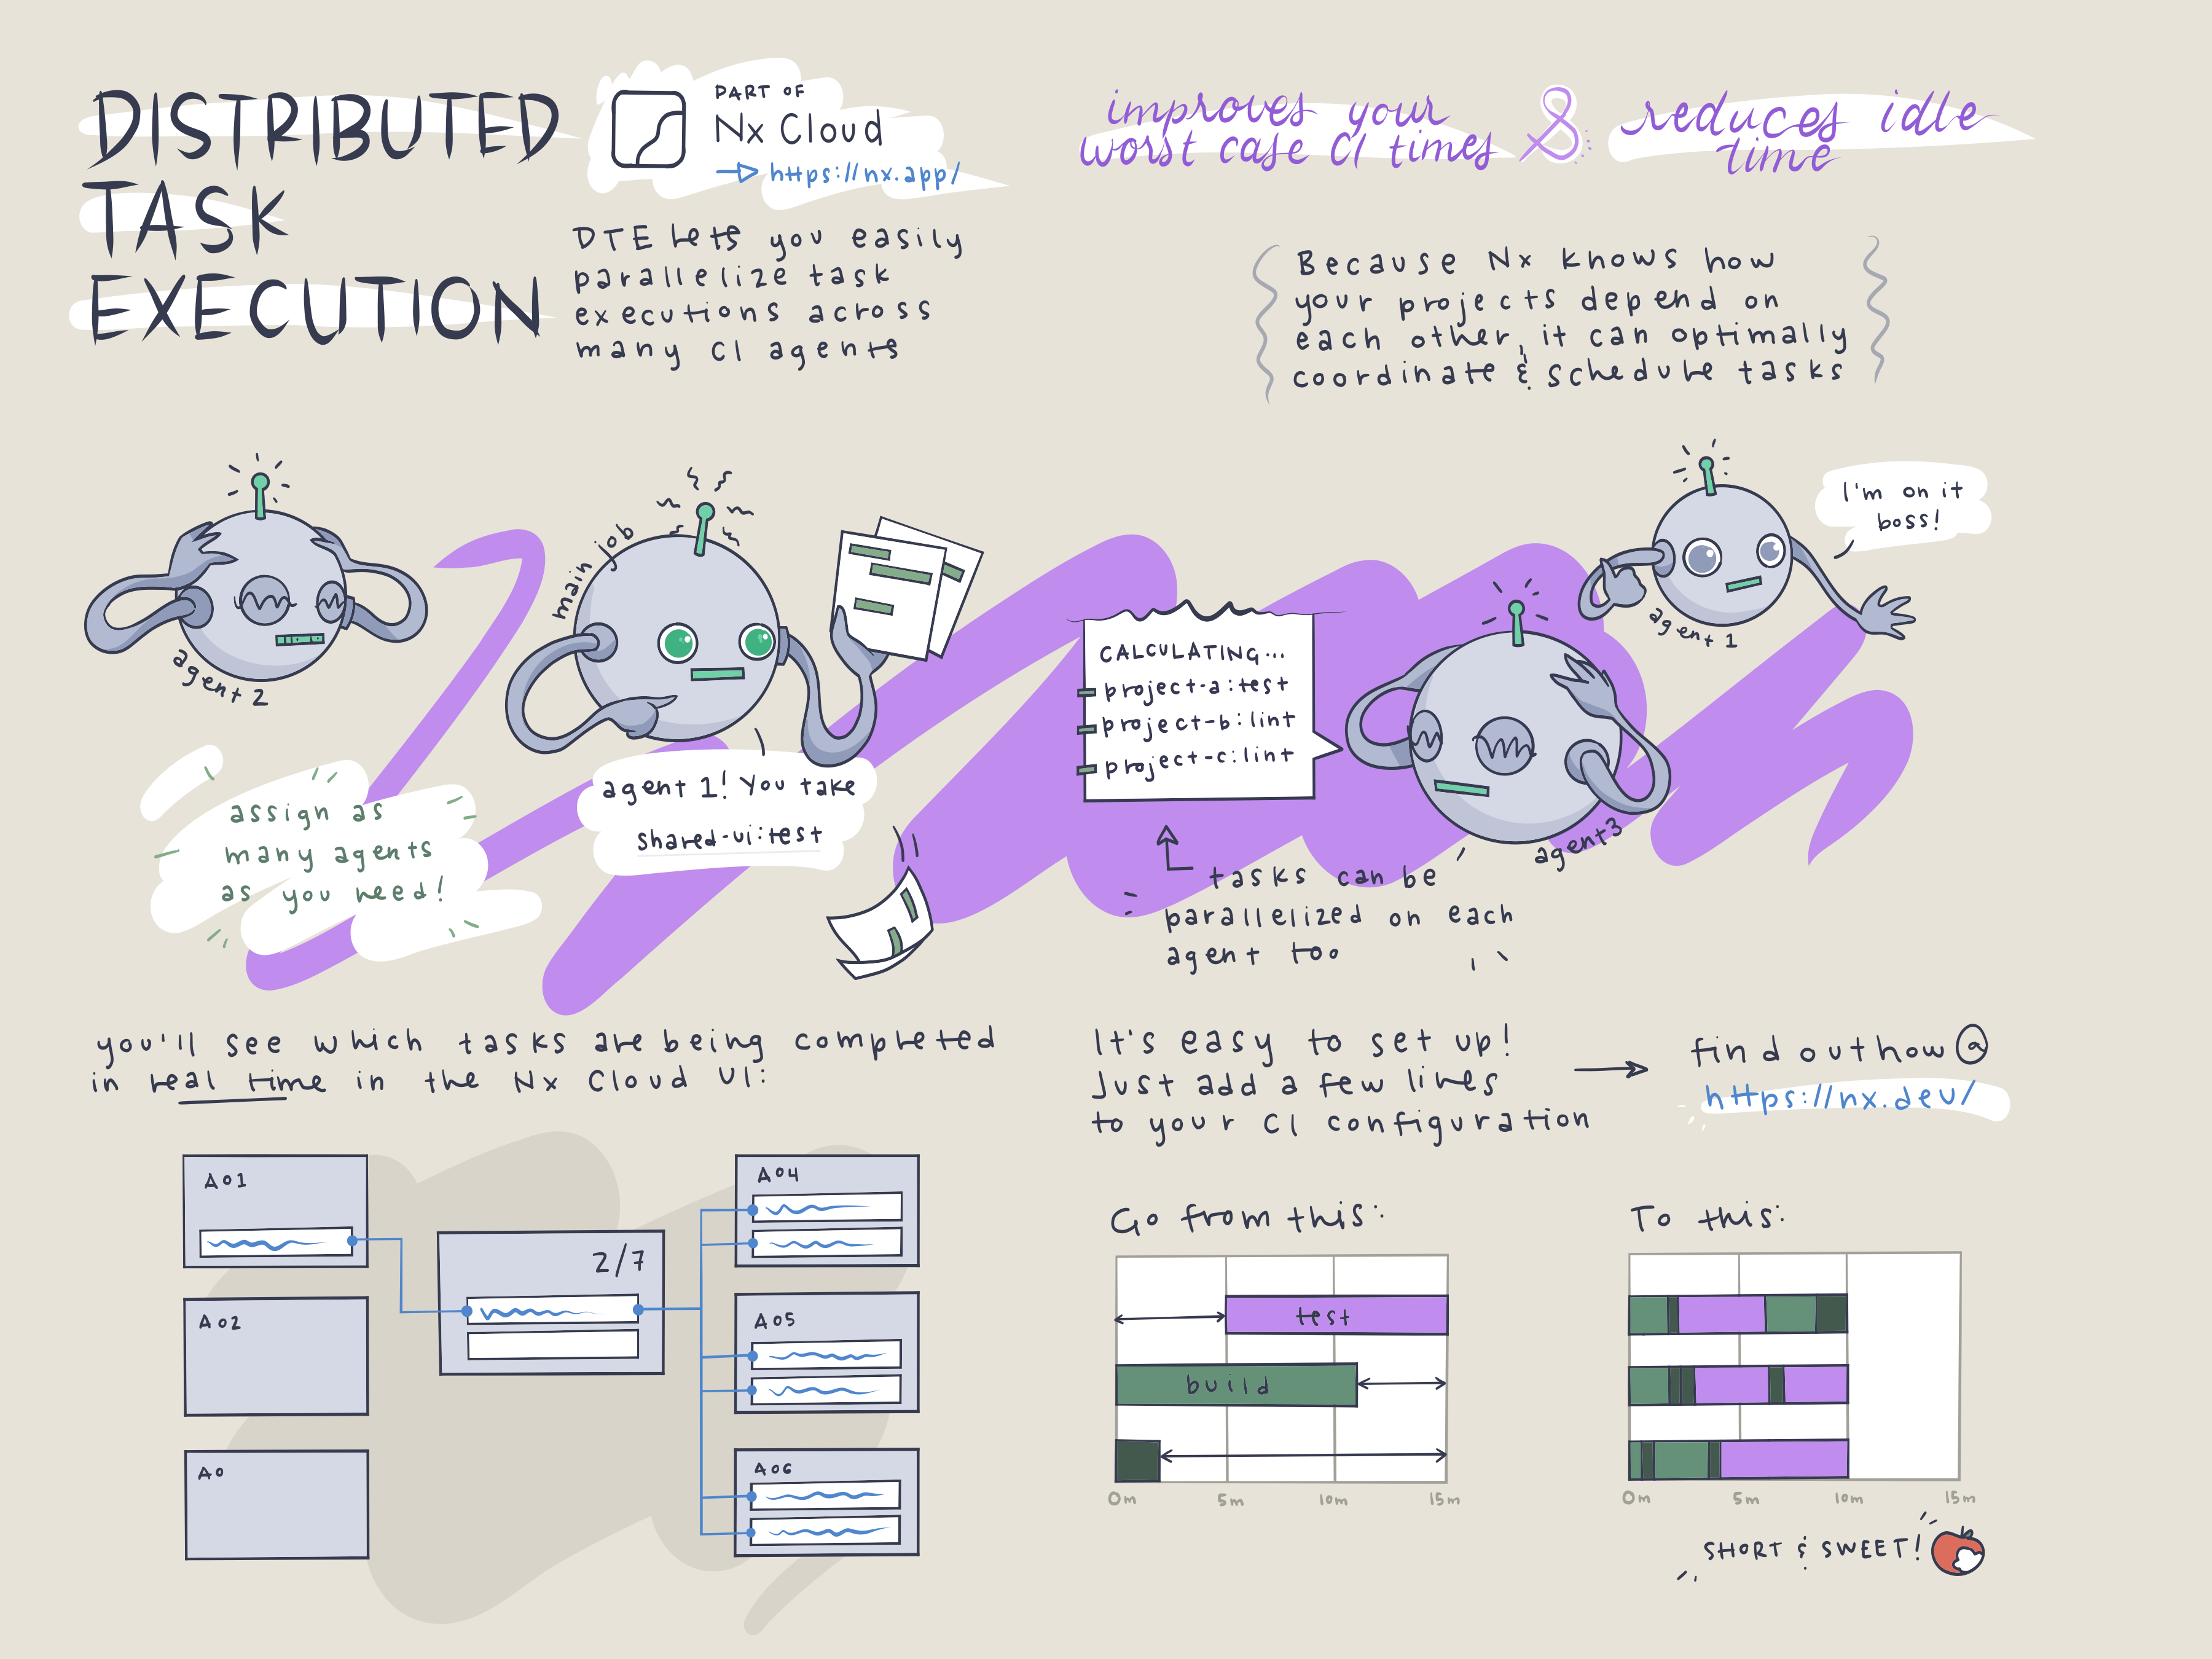 DISTRIBUTED
TASK
EXECUTION
PART OF
Nx Cloud
https://nx.app/
DTE lets you easily
parallelize task
executions across
many CI agents
improves your
worst case CI times
&
reduces idle
time
Because Nx knows how
your projects depend on
each other, it can optimally
coordinate & schedule tasks
agent 2
main job
agent 1! You take
shared-ui:test
assign as
many agents
as you need!
CALCULATING...
project-a:test
project-b:lint
project-c:lint
tasks can be
parallelized on each
agent too
agent 3
agent 1
I'm on it
boss!
you'll see which tasks are being completed
in real time in the Nx Cloud UI:
A01
A02
A0
2/7
A04
A05
A06
It's easy to set up!
Just add a few lines
to your CI configuration
find out how @
https://nx.dev/
Go from this:
test
build
0m 5m 10m 15m
To this:
0m 5m 10m 15m
SHORT & SWEET!